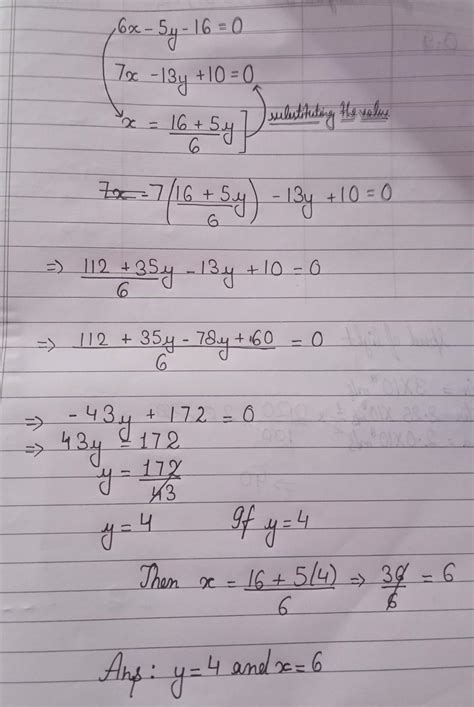 6x - 5y - 16 = 0
7x - 13y + 10 = 0
x = 16 + 5y / 6 ] substituting the value
7x = 7(16 + 5y / 6) - 13y + 10 = 0
=> 112 + 35y / 6 - 13y + 10 = 0
=> 112 + 35y - 78y + 60 / 6 = 0
=> -43y + 172 = 0
=> 43y = 172
y = 172 / 43
y = 4 If y = 4
Then x = 16 + 5(4) / 6 => 36 / 6 = 6
Ans: y = 4 and x = 6